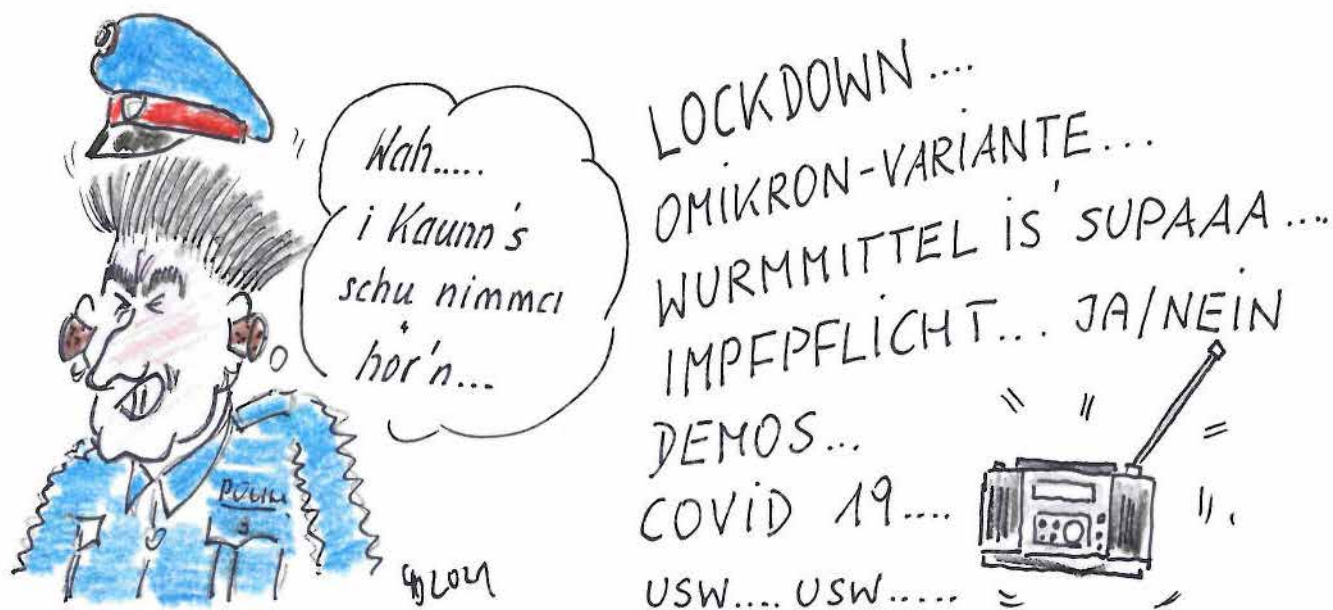 Wah.....
i kaunn's
schu nimma
hör'n...
LOCKDOWN....
OMIKRON-VARIANTE...
WURMMITTEL IS' SUPAAA....
IMPFPFLICHT... JA/NEIN
DEMOS...
COVID 19....
USW.... USW.....
2021